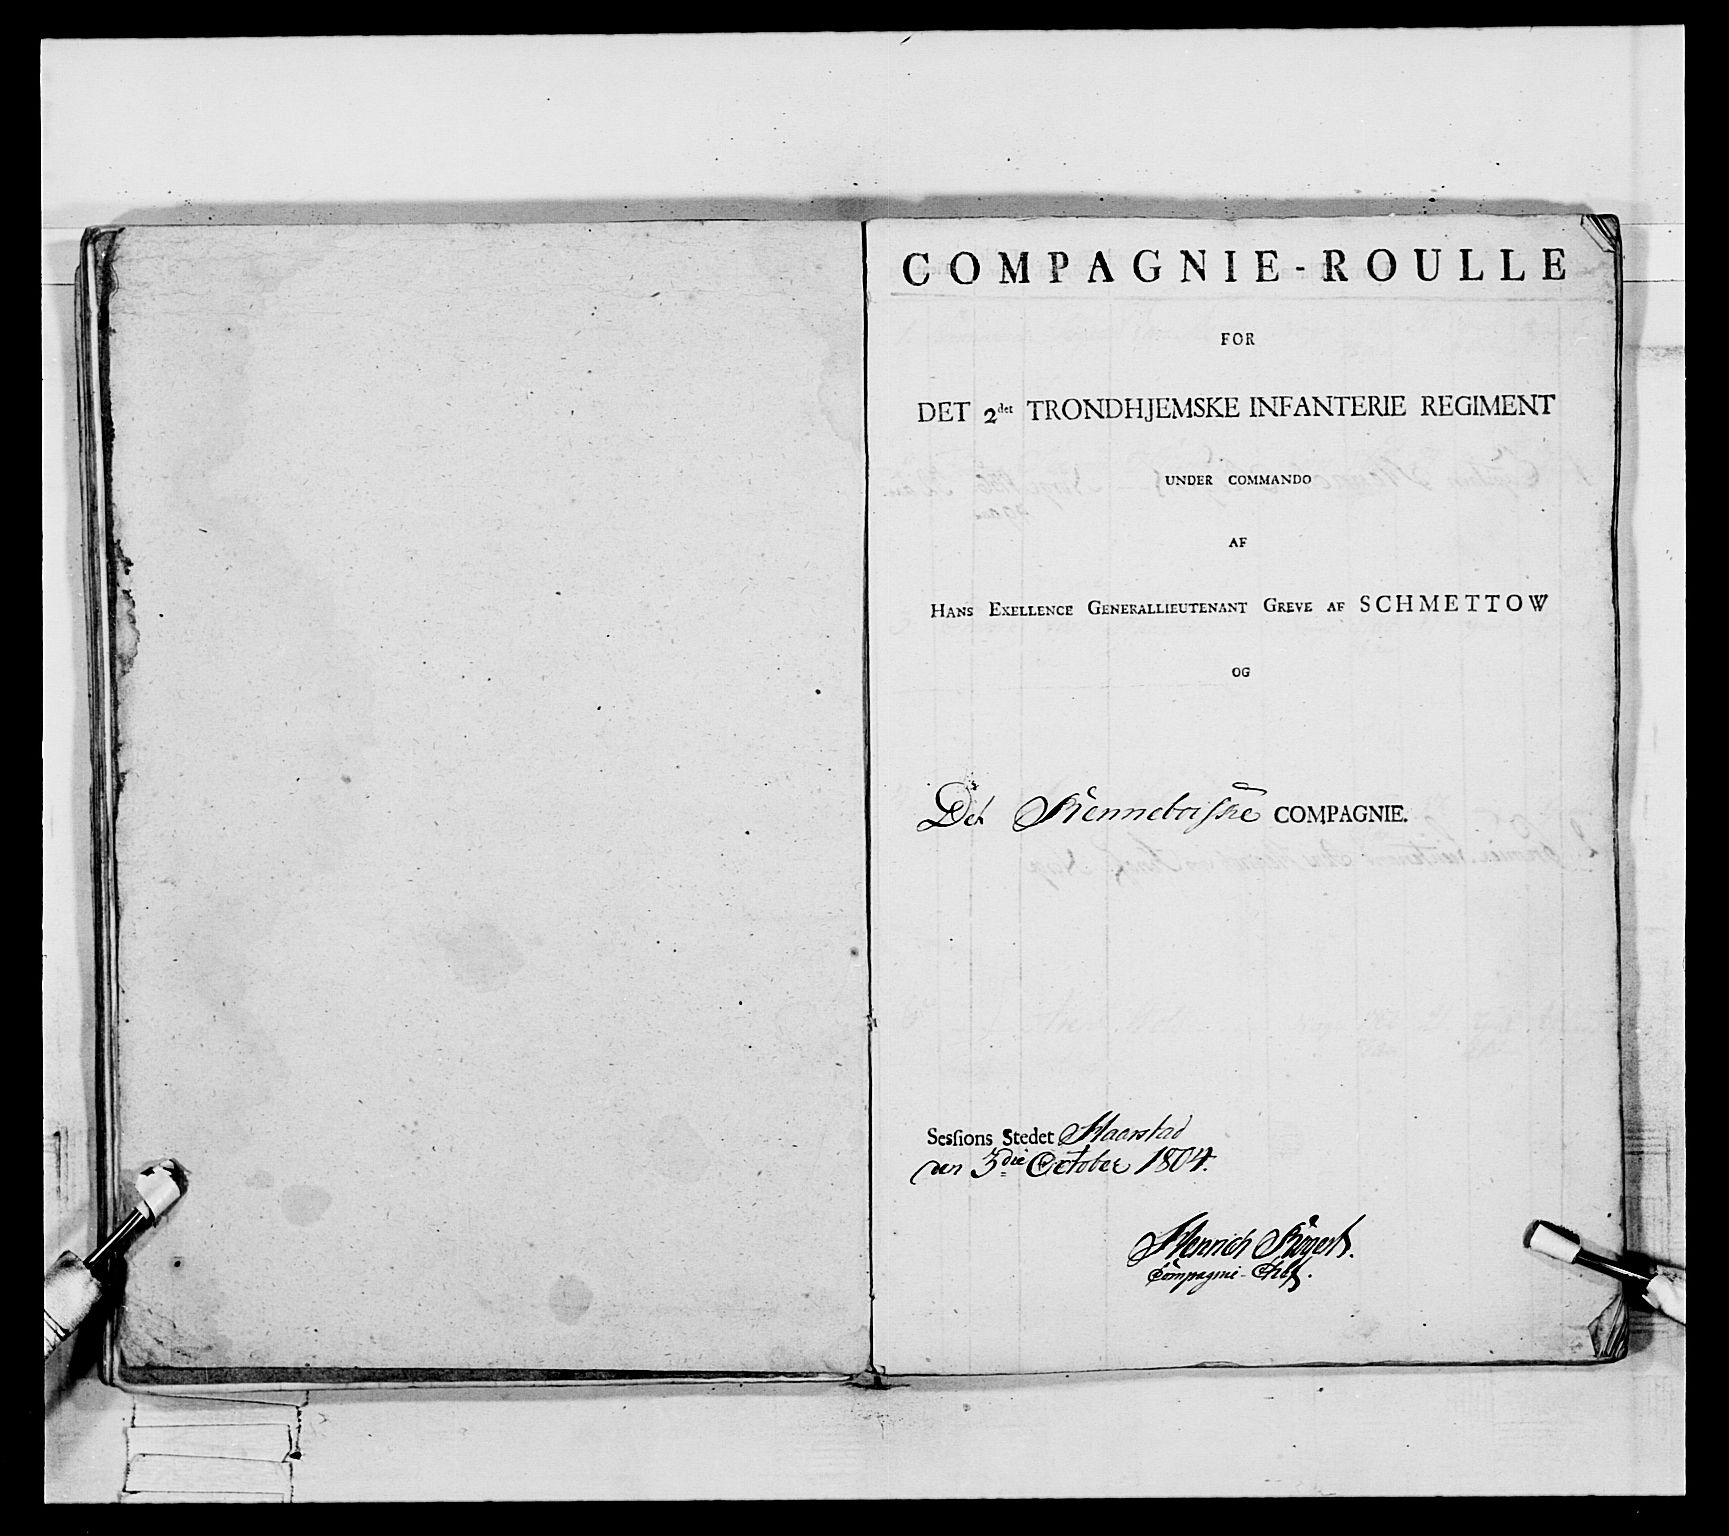 COMPAGNIE-ROULLE
FOR
DET 2det TRONDHJEMSKE INFANTERIE REGIMENT
UNDER COMMANDO
AF
HANS EXELLENCE GENERALLIEUTENANT GREVE AF SCHMETTOW
OG
Det Renneboiske COMPAGNIE.
Sesſions Stedet Haarstad
den 3die October 1804.
Henrich
Compagnie-Chef.